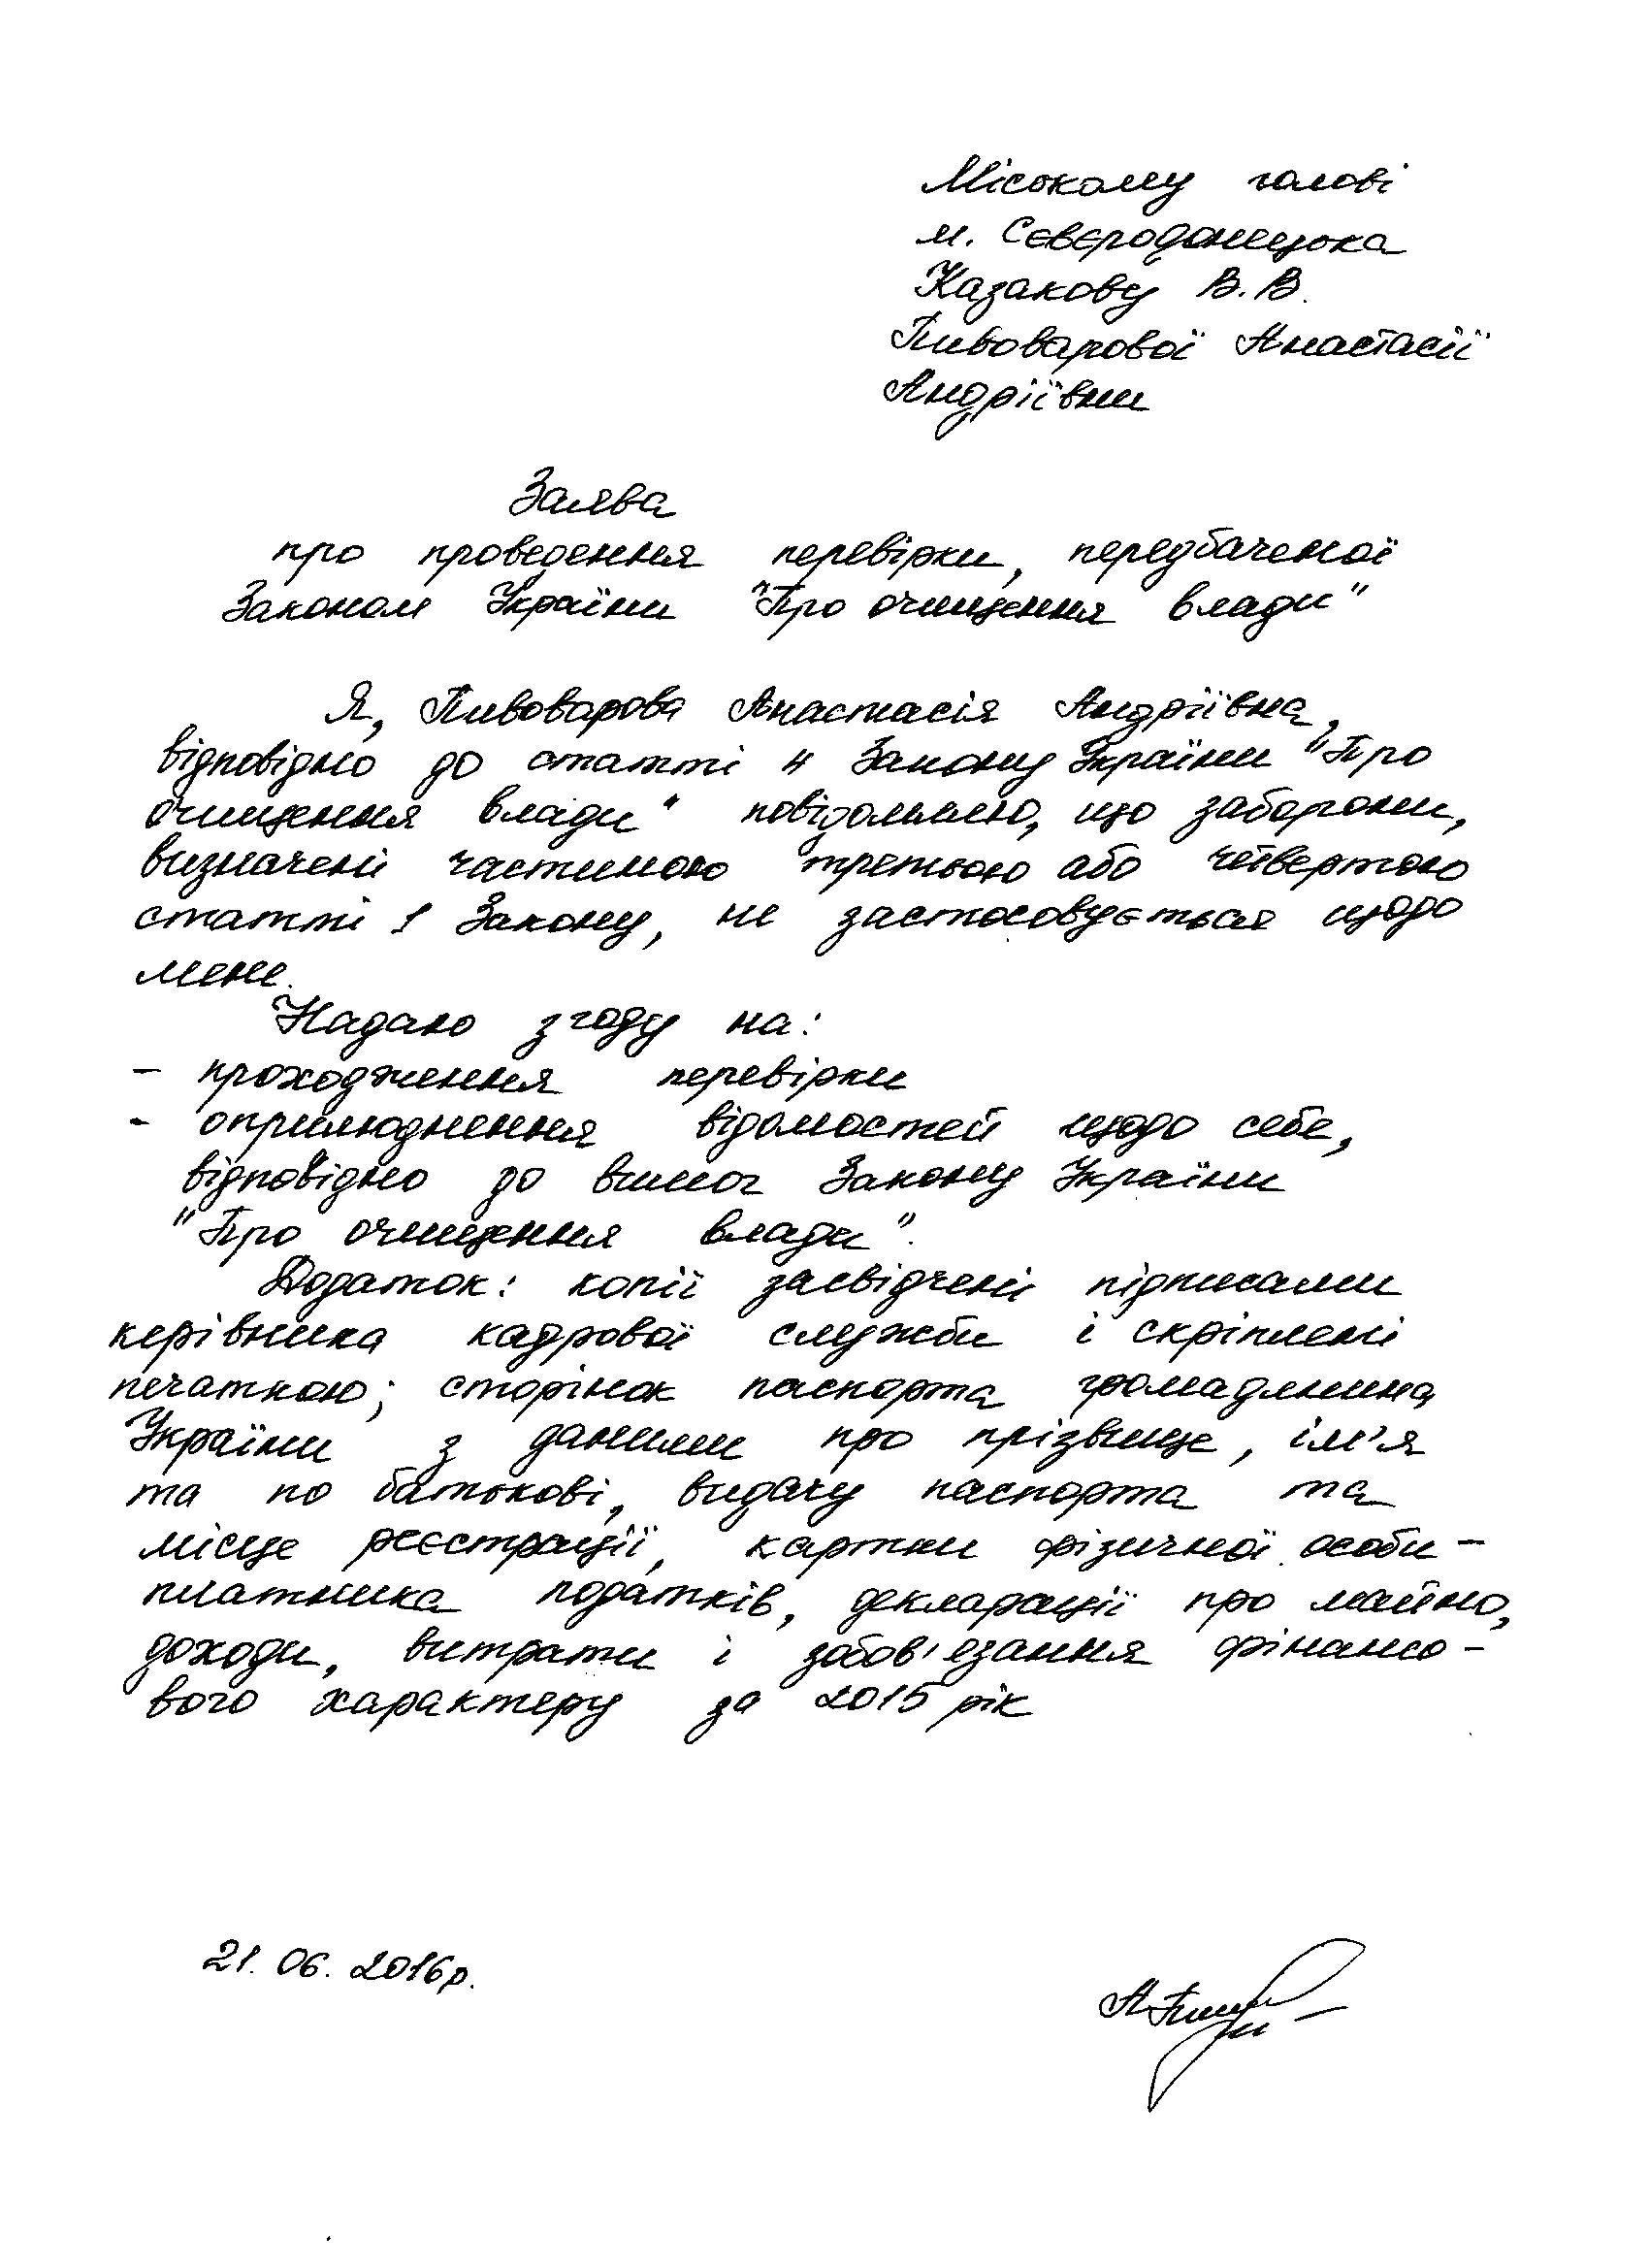 Міському голові
м. Сєвєродонецька
Казакову В.В.
Пивоварової Анастасії
Андріївни
Заява
про проведення перевірки, передбаченої
Законом України "Про очищення влади"
Я, Пивоварова Анастасія Андріївна,
відповідно до статті 4 Закону України "Про
очищення влади" повідомляю, що заборони,
визначені частиною третьою або четвертою
статті 1 Закону, не застосовується щодо
мене.
Надаю згоду на:
- проходження перевірки
- оприлюднення відомостей щодо себе,
відповідно до вимог Закону України
"Про очищення влади".
Додаток: копії засвідчені підписами
керівника кадрової служби і скріплені
печаткою; сторінок паспорта громадянина
України з даними про прізвище, ім'я
та по батькові, видачу паспорта та
місце реєстрації, картки фізичної особи -
платника податків, декларації про майно,
доходи, витрати і зобов'язання фінансо -
вого характеру за 2015 рік
21. 06. 2016р.